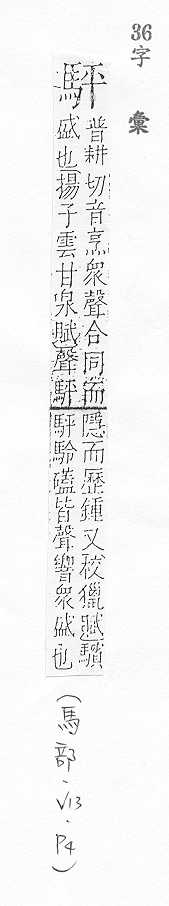 36
字彙
駍
普耕切音烹衆聲合同而
盛也揚子雲甘泉賦聲駍
隱而歷鍾又校獵賦驞
駍駖磕皆聲響衆盛也
(馬部．V13．P4)